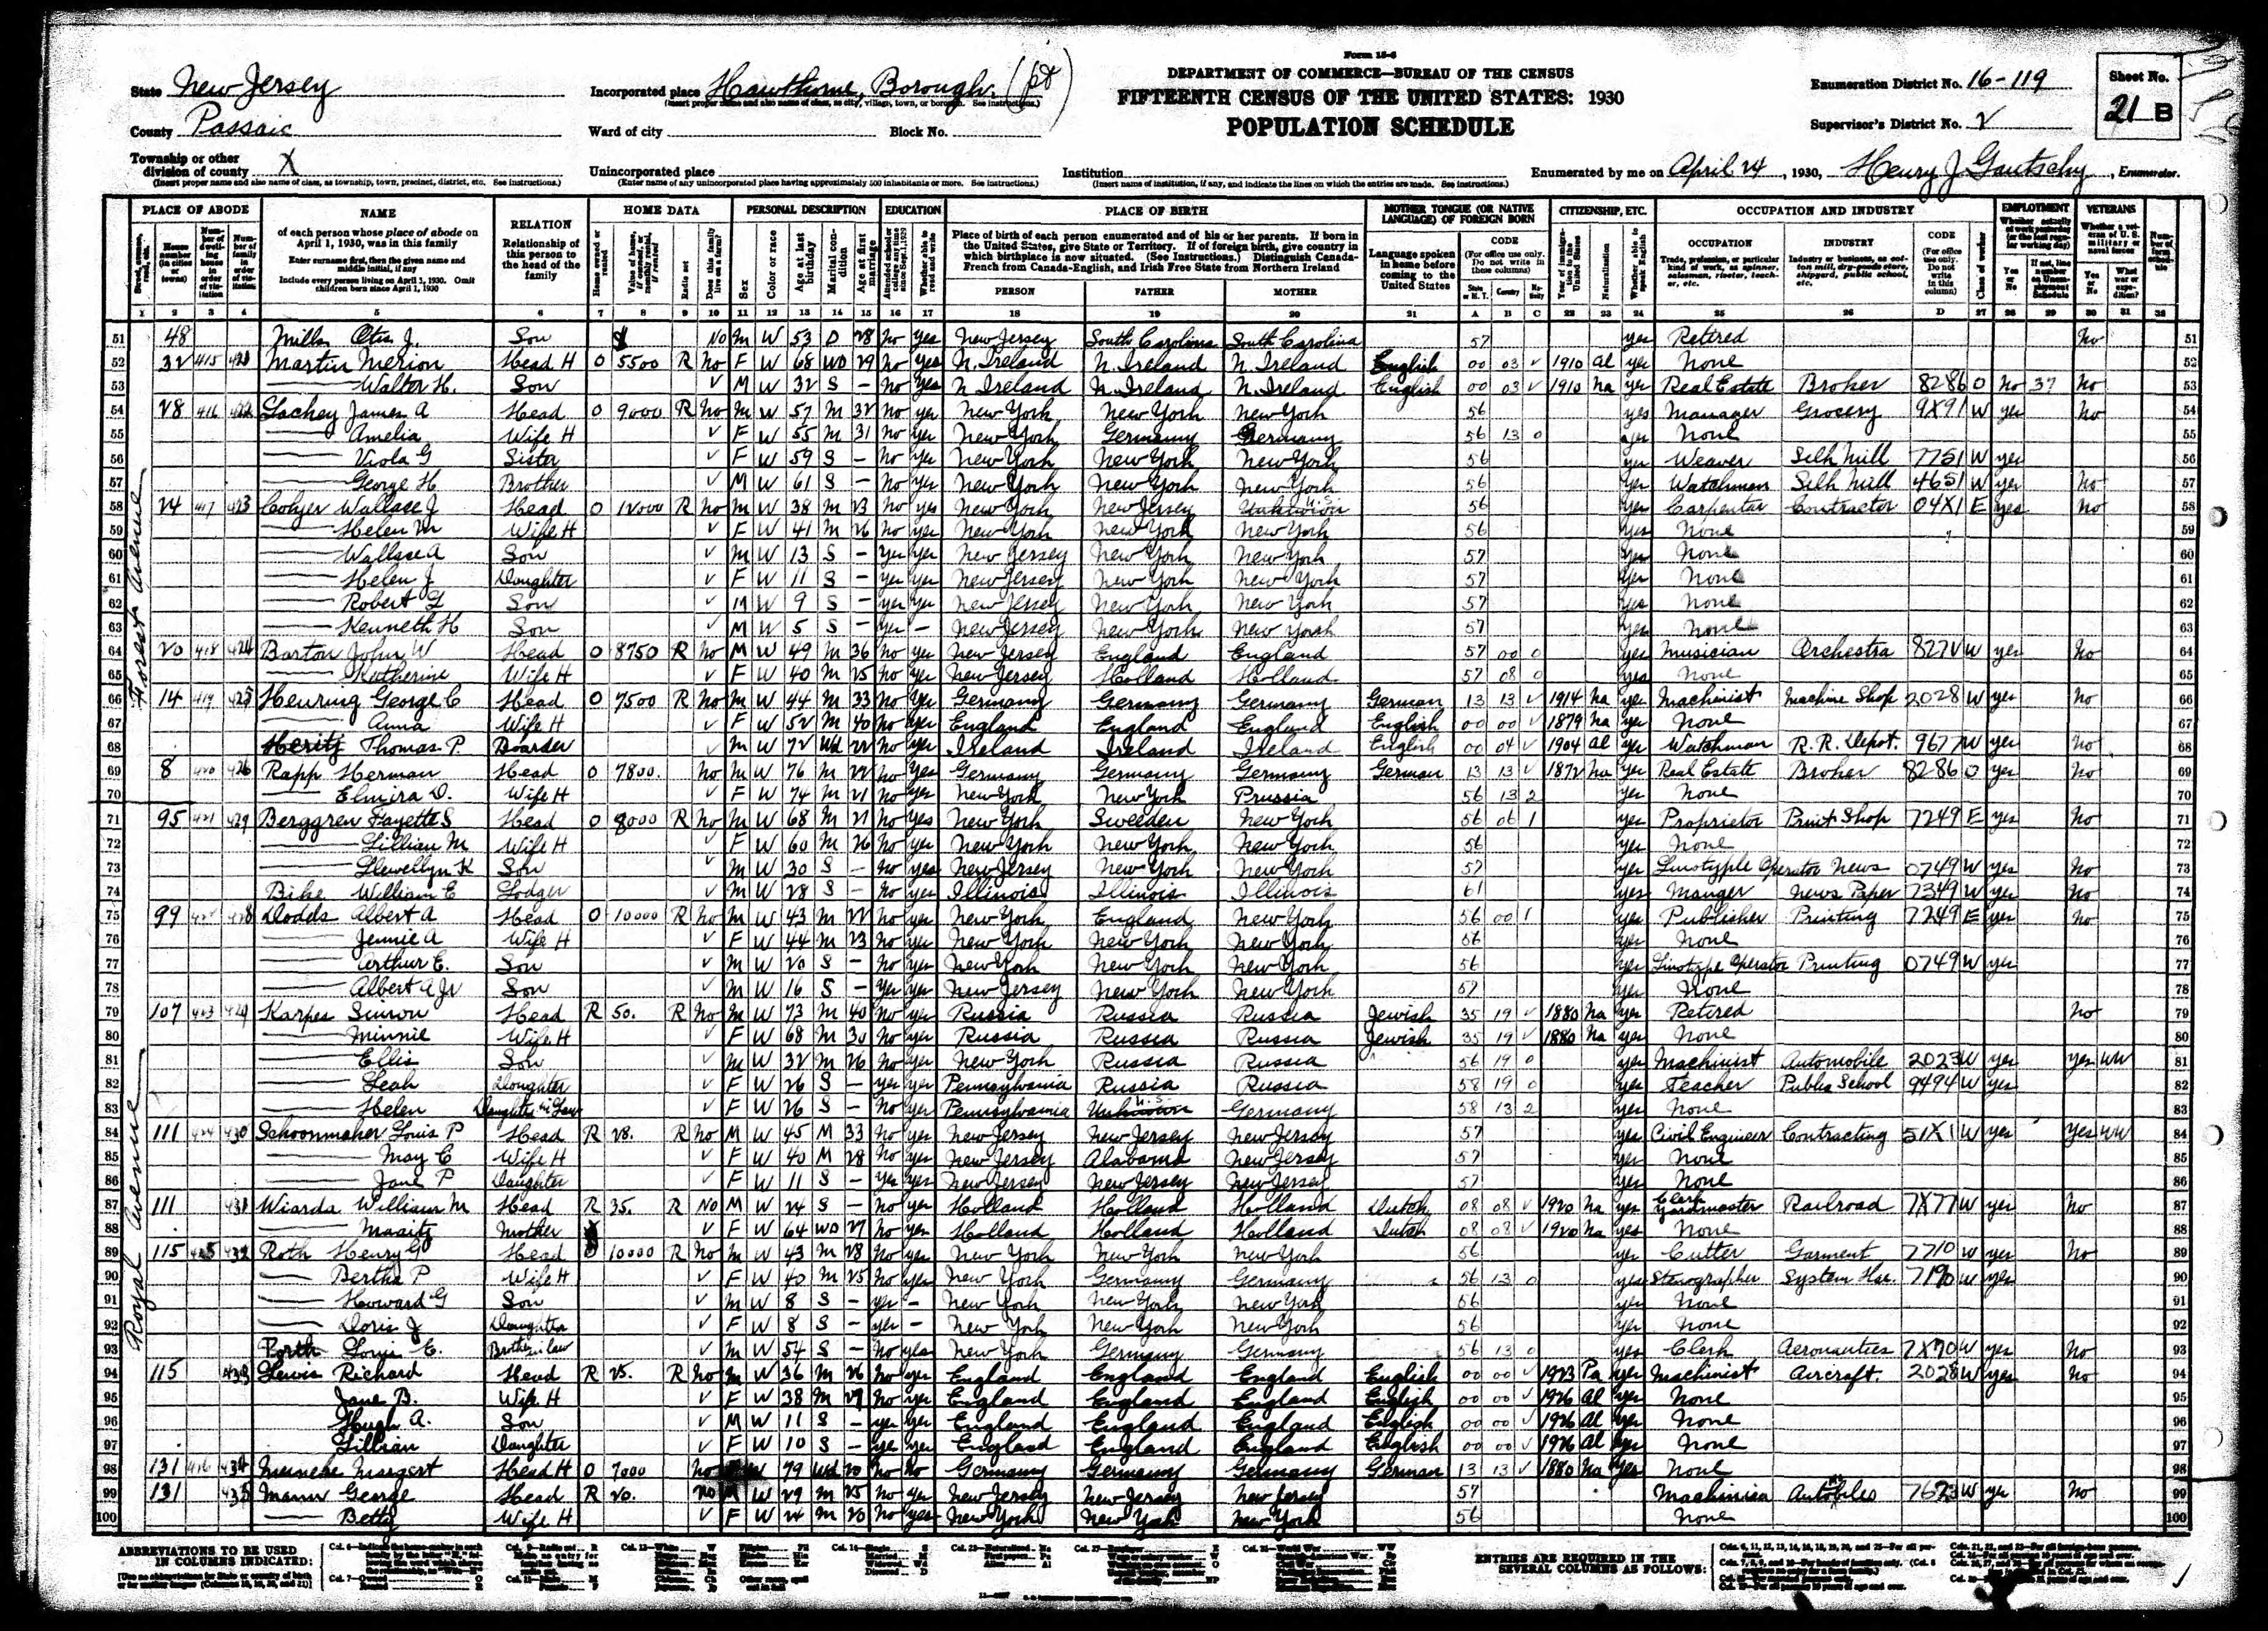 Form 15-6
DEPARTMENT OF COMMERCE—BUREAU OF THE CENSUS
FIFTEENTH CENSUS OF THE UNITED STATES: 1930
POPULATION SCHEDULE
State New Jersey
County Passaic
Township or other division of county X
(Insert proper name and also name of class, as township, town, precinct, district, etc. See instructions.)
Incorporated place Hawthorne, Borough. (pt)
(Insert proper name and also name of class, as city, village, town, or borough. See instructions.)
Ward of city Block No.
Unincorporated place
(Enter name of any unincorporated place having approximately 500 inhabitants or more. See instructions.)
Institution
(Insert name of institution, if any, and indicate the lines on which the entries are made. See instructions.)
Enumeration District No. 16-119
Supervisor's District No. 2
Sheet No. 21 B
Enumerated by me on April 24, 1930, Henry J Gautschy, Enumerator.
PLACE OF ABODE NAME RELATION HOME DATA PERSONAL DESCRIPTION EDUCATION PLACE OF BIRTH MOTHER TONGUE (OR NATIVE LANGUAGE) OF FOREIGN BORN CITIZENSHIP, ETC. OCCUPATION AND INDUSTRY EMPLOYMENT VETERANS
of each person whose place of abode on April 1, 1930, was in this family
Enter surname first, then the given name and middle initial, if any
Include every person living on April 1, 1930. Omit children born since April 1, 1930
Relationship of this person to the head of the family
Place of birth of each person enumerated and of his or her parents. If born in the United States, give State or Territory. If of foreign birth, give country in which birthplace is now situated. (See Instructions.) Distinguish Canada-French from Canada-English, and Irish Free State from Northern Ireland
PERSON FATHER MOTHER
Language spoken in home before coming to the United States
CODE (For office use only. Do not write in these columns)
OCCUPATION INDUSTRY CODE
1 2 3 4 5 6 7 8 9 10 11 12 13 14 15 16 17 18 19 20 21 A B C 22 23 24 25 26 D 27 28 29 30 31 32
Forest Avenue
51 48 Mills Otis J. Son No M W 53 D 28 No Yes New Jersey South Carolina South Carolina 57 yes Retired No 51
52 32 415 421 Martin Merion Head H O 5500 R No F W 68 WD 29 No Yes N. Ireland N. Ireland N. Ireland English 00 03 V 1910 Al yes None 52
53 Walter H. Son V M W 32 S – No Yes N Ireland N. Ireland N. Ireland English 00 03 V 1910 Na yes Real Estate Broker 8286 O No 37 No 53
54 28 416 422 Lachey James A Head O 9000 R No M W 57 M 32 No yes New York New York New York 56 yes Manager Grocery 9X91 W yes No 54
55 Amelia Wife H V F W 55 M 31 No yes New York Germany Germany 56 13 0 yes None 55
56 Viola G Sister V F W 59 S – No yes New York New York New York 56 yes Weaver Silk Mill 7751 W yes 56
57 George H Brother V M W 61 S – No yes New York New York New York 56 yes Watchman Silk Mill 4651 W yes No 57
58 24 417 423 Colyer Wallace J Head O 12000 R No M W 38 M 23 No yes New York New Jersey Unknown U.S. 56 yes Carpenter Contractor 04X1 E yes No 58
59 Helen M Wife H V F W 41 M 26 No yes New York New York New York 56 yes None 59
60 Wallace A Son V M W 13 S – yes yes New Jersey New York New York 57 yes None 60
61 Helen J Daughter V F W 11 S – yes yes New Jersey New York New York 57 yes None 61
62 Robert L Son V M W 9 S – yes yes New Jersey New York New York 57 yes None 62
63 Kenneth H Son V M W 5 S – yes – New Jersey New York New York 57 yes None 63
64 20 418 424 Barton John W Head O 8750 R No M W 49 M 36 No yes New Jersey England England 57 00 0 yes Musician Orchestra 827V W yes No 64
65 Katherine Wife H V F W 40 M 25 No yes New Jersey Holland Holland 57 08 0 yes None 65
66 14 419 425 Heuring George C Head O 7500 R No M W 44 M 33 No yes Germany Germany Germany German 13 13 V 1914 Na yes Machinist Machine Shop 2028 W yes No 66
67 Anna Wife H V F W 52 M 40 No yes England England England English 00 00 V 1879 Na yes None 67
68 Thomas P. Boarder V M W 72 Wd 22 No yes Ireland Ireland Ireland English 00 04 V 1904 Al yes Watchman R.R. Depot. 9677 W yes No 68
69 8 420 426 Rapp Herman Head O 7800. No M W 76 M 22 No Yes Germany Germany Germany German 13 13 V 1872 Na yes Real Estate Broker 8286 O yes No 69
70 Elmira D. Wife H V F W 74 M 21 No yes New York New York Prussia 56 13 2 yes None 70
Royal Avenue
71 95 421 427 Berggren Fayette S Head O 8000 R No M W 68 M 21 No Yes New York Sweeden New York 56 06 1 yes Proprietor Print Shop 7249 E yes No 71
72 Lillian M Wife H V F W 60 M 26 No yes New York New York New York 56 yes None 72
73 Llewellyn K Son V M W 30 S – No yes New Jersey New York New York 57 yes Linotyple Operator News 0749 W yes No 73
74 Bike William E Lodger V M W 28 S – No yes Illinois Illinois Illinois 61 yes Manger News Paper 7349 W yes No 74
75 99 422 428 Dodds Albert A Head O 10000 R No M W 43 M 22 No yes New York England New York 56 00 1 yes Publisher Printing 7249 E yes No 75
76 Jennie A Wife H V F W 44 M 23 No yes New York New York New York 56 yes None 76
77 Arthur E. Son V M W 20 S – No yes New York New York New York 56 yes Linotype Operator Printing 0749 W yes 77
78 Albert A Jr Son V M W 16 S – Yes yes New Jersey New York New York 57 yes None 78
79 107 423 429 Karpes Simon Head R 50. R No M W 73 M 40 No yes Russia Russia Russia Jewish 35 19 V 1880 Na yes Retired No 79
80 Minnie Wife H V F W 68 M 30 No yes Russia Russia Russia Jewish 35 19 V 1880 Na yes None 80
81 Ellis Son V M W 32 M 26 No yes New York Russia Russia 56 19 0 yes Machinist Automobile 2023 W yes yes WW 81
82 Leah Daughter V F W 26 S – yes yes Pennsylvania Russia Russia 58 19 0 yes Teacher Public School 9494 W yes 82
83 Helen Daughter in Law V F W 26 S – No yes Pennsylvania Unknown U.S. Germany 58 13 2 yes None 83
84 111 424 430 Schoonmaker Louis P Head R 28. R No M W 45 M 33 No yes New Jersey New Jersey New Jersey 57 yes Civil Engineer Contracting 51X1 W yes Yes WW 84
85 May C Wife H V F W 40 M 28 No yes New Jersey Alabama New Jersey 57 yes None 85
86 Jane P Daughter V F W 11 S – yes yes New Jersey New Jersey New Jersey 57 yes None 86
87 111 431 Wiarda William M Head R 35. R No M W 24 S – No yes Holland Holland Holland Dutch 08 08 V 1920 Na yes Clerk Yardmaster Railroad 7X77 W yes No 87
88 Mother V F W 64 WD 27 No yes Holland Holland Holland Dutch 08 08 V 1920 Na yes None 88
89 115 425 432 Roth Henry G Head O 10000 R No M W 43 M 28 No yes New York New York New York 56 yes Cutter Garment 7710 W yes No 89
90 Bertha P Wife H V F W 40 M 25 No yes New York Germany Germany 56 13 0 yes Stenographer System 7190 W yes 90
91 Howard G Son V M W 8 S – yes – New York New York New York 56 yes None 91
92 Doris J Daughter V F W 8 S – yes – New York New York New York 56 yes None 92
93 Porth Louis E. Brother in law V M W 54 S – No yes New York Germany Germany 56 13 0 yes Clerk Aeronautics 7X70 W yes No 93
94 115 433 Lewis Richard Head R 25. R No M W 36 M 26 No yes England England England English 00 00 V 1923 Pa yes Machinist Aircraft. 2028 W yes No 94
95 Jane B. Wife H V F W 38 M 29 No yes England England England English 00 00 V 1926 Al yes None 95
96 Hugh A. Son V M W 11 S – yes yes England England England English 00 00 V 1926 Al yes None 96
97 Lillian Daughter V F W 10 S – yes yes England England England English 00 00 V 1926 Al yes None 97
98 131 426 434 Meineke Margert Head H O 7000 No W 79 Wd 20 No No Germany Germany Germany German 13 13 V 1880 Na yes None 98
99 131 435 Mann George Head R 20. No M W 29 M 25 No yes New Jersey New Jersey New Jersey 57 Automobiles 7623 W yes No 99
100 Betty Wife H V F W 24 M 20 No yes New York New York New York 56 None 100
ABBREVIATIONS TO BE USED IN COLUMNS INDICATED:
[Use no abbreviations for State or country of birth or for mother tongue (Columns 18, 19, 20, and 21)]
ENTRIES ARE REQUIRED IN THE SEVERAL COLUMNS AS FOLLOWS: